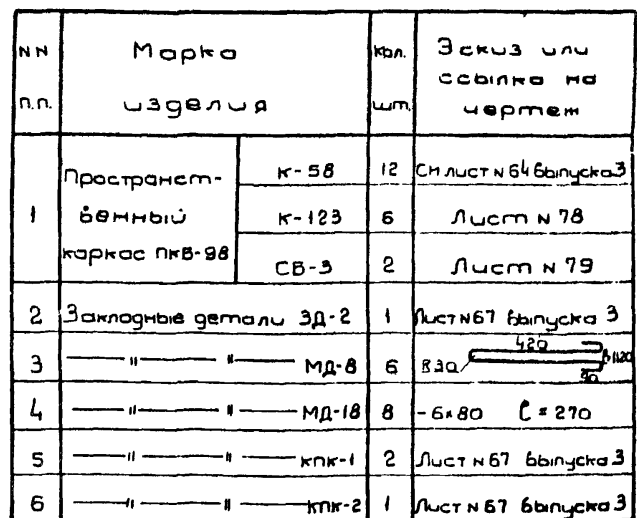 NN п.п. Марка изделия Кол. шт. Эскиз или ссылка на чертеж
1 Пространственный каркас ПКВ-98 К-58 12 См лист N 64 выпуска 3
К-123 6 Лист N 78
СВ-3 2 Лист N 79
2 Закладные детали ЗД-2 1 Лист N67 выпуска 3
3 — " — " — МД-8 6 420
4 — " — " — МД-18 8 -6×80 ℓ=270
5 — " — " — КПК-1 2 Лист N67 выпуска 3
6 — " — " — КПК-2 1 Лист N67 выпуска 3